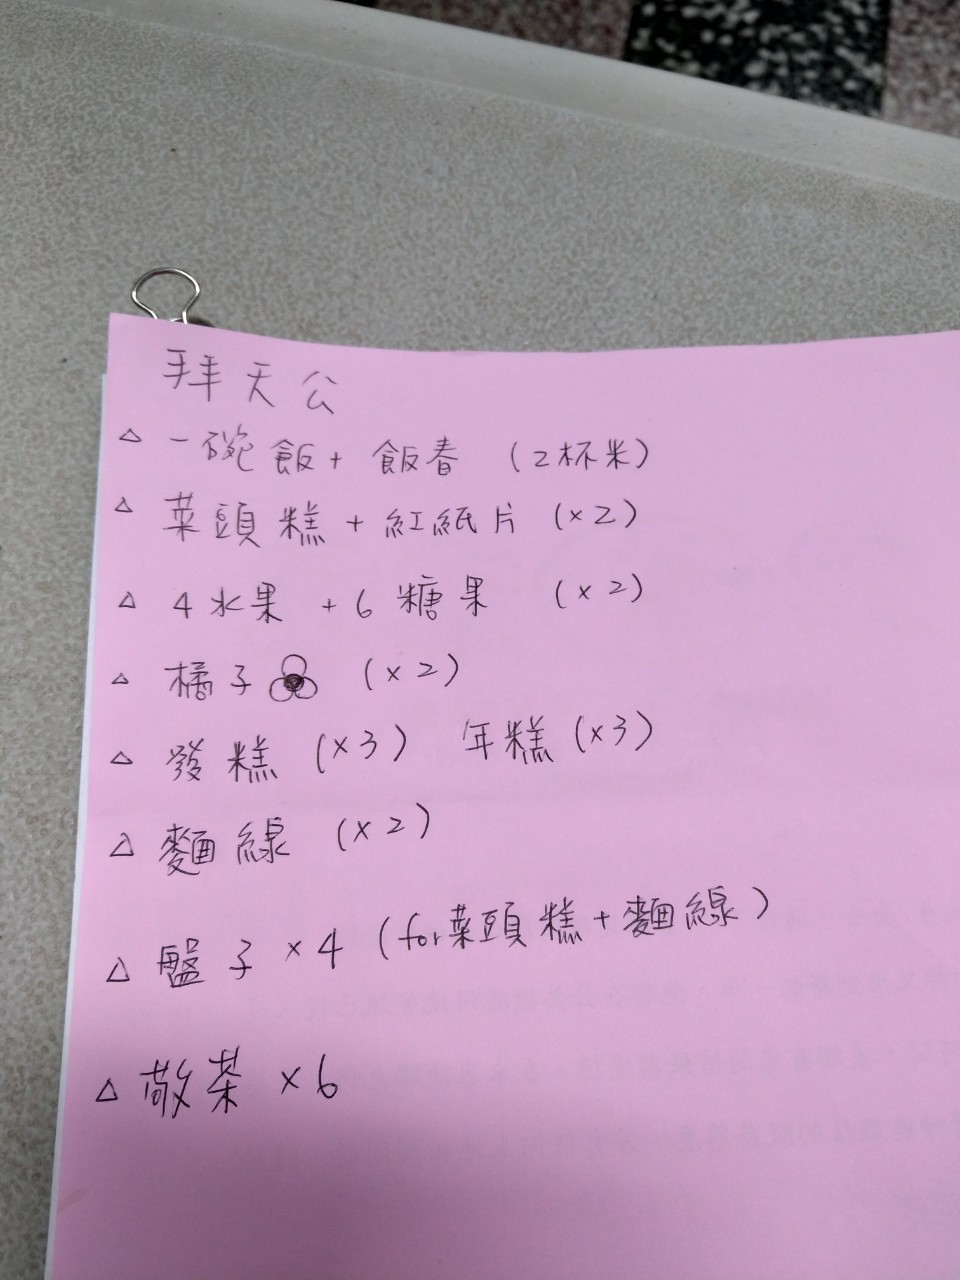 拜天公
△ 一碗飯 + 飯春 (2杯米)
△ 菜頭糕 + 紅紙片 (×2)
△ 4水果 + 6糖果 (×2)
△ 橘子 (×2)
△ 發糕 (×3) 年糕 (×3)
△ 麵線 (×2)
△ 盤子 ×4 (for菜頭糕+麵線)
△ 敬茶 ×6